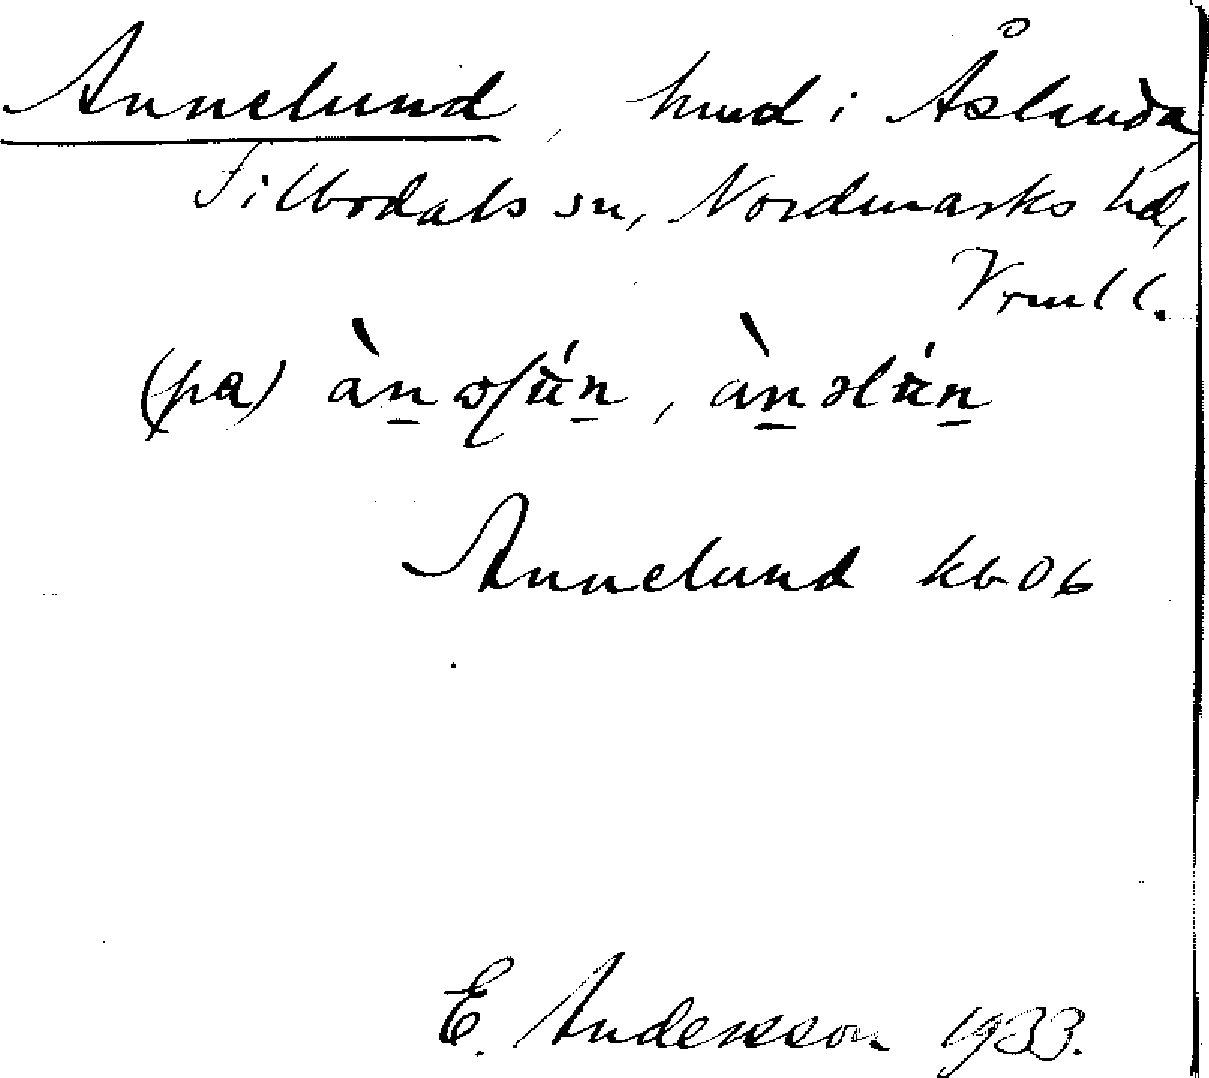 Annelund, hmd i Åslanda,
Silbodals sn, Nordmarks hd,
Vrml l.
(pa) ànəlún, ànəlún
Annelund kb 06
E. Andersson 1933.